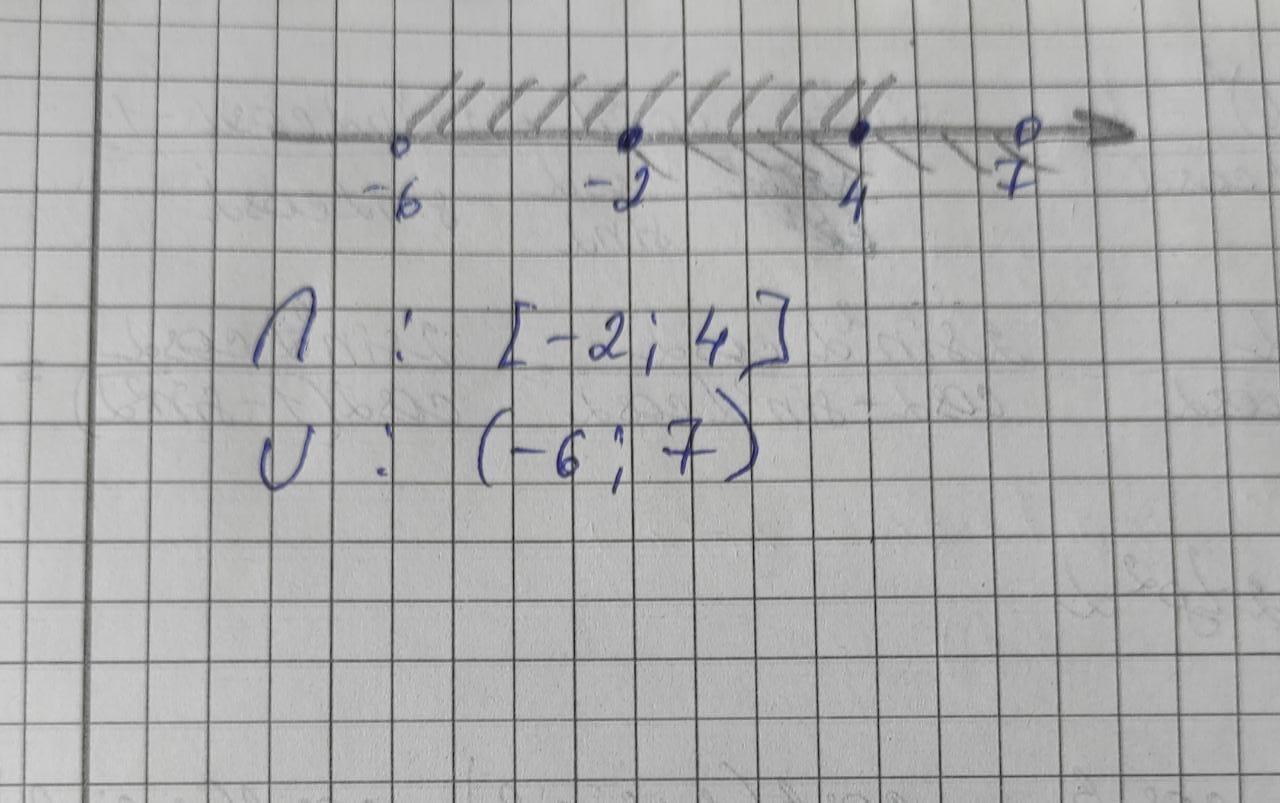 -6 -2 4 7
∩ : [-2; 4]
∪ : (-6; 7)